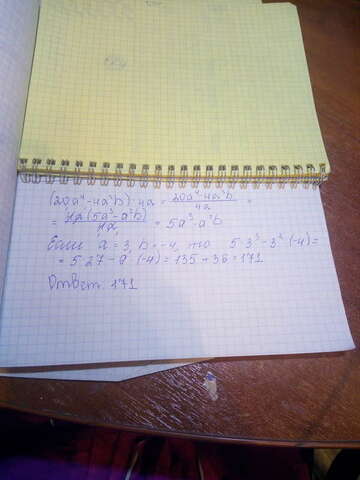 (20a⁴-4a³b):4a = 20a⁴-4a³b/4a =
= 4a(5a³-a²b)/4a = 5a³-a²b
Если a=3, b=-4, то 5·3³-3²·(-4)=
= 5·27-9·(-4)=135+36=171
Ответ: 171